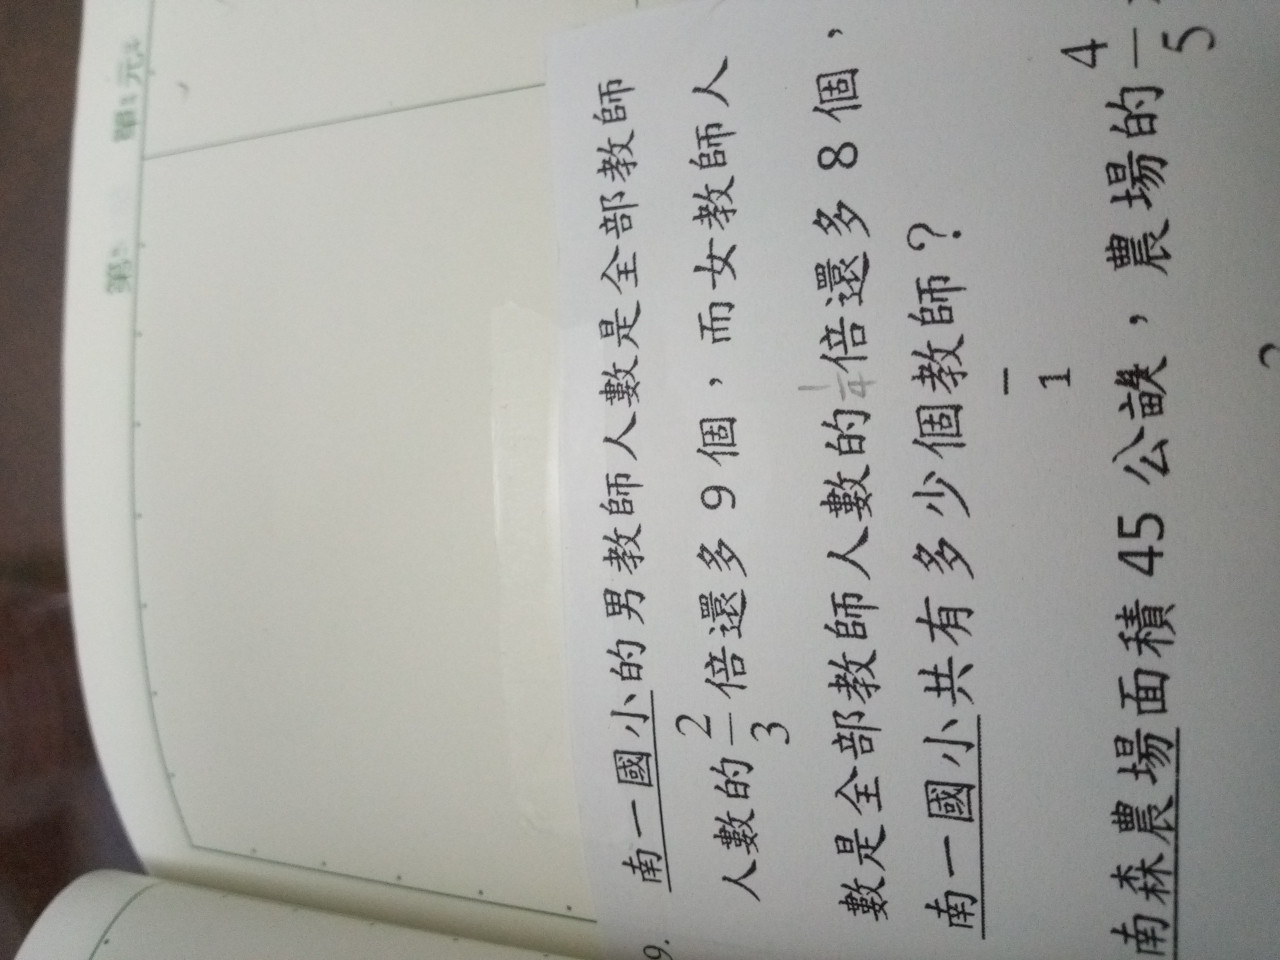 第 單元
9. 南一國小的男教師人數是全部教師
人數的 2/3 倍還多 9 個，而女教師人
數是全部教師人數的 1/4 倍還多 8 個，
南一國小共有多少個教師？
1
南森農場面積 45 公畝，農場的 4/5